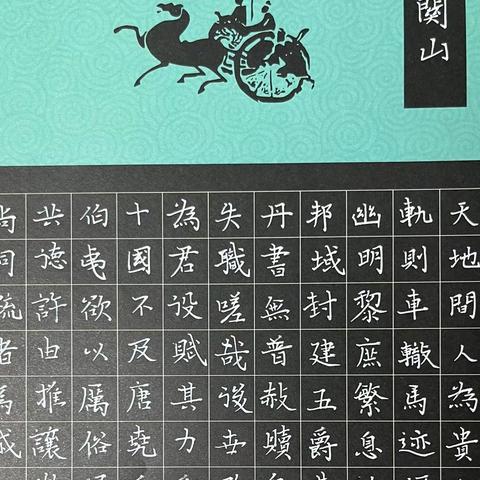 關山
天地間人為貴
軌則車轍馬迹
幽明黎庶繁息
邦域封建五爵
丹書無普赦贖
失職嗟哉後世
為君役賦其力
十國不及唐堯
伯夷欲以厲俗
共德許由推讓
尚同疏者為戚